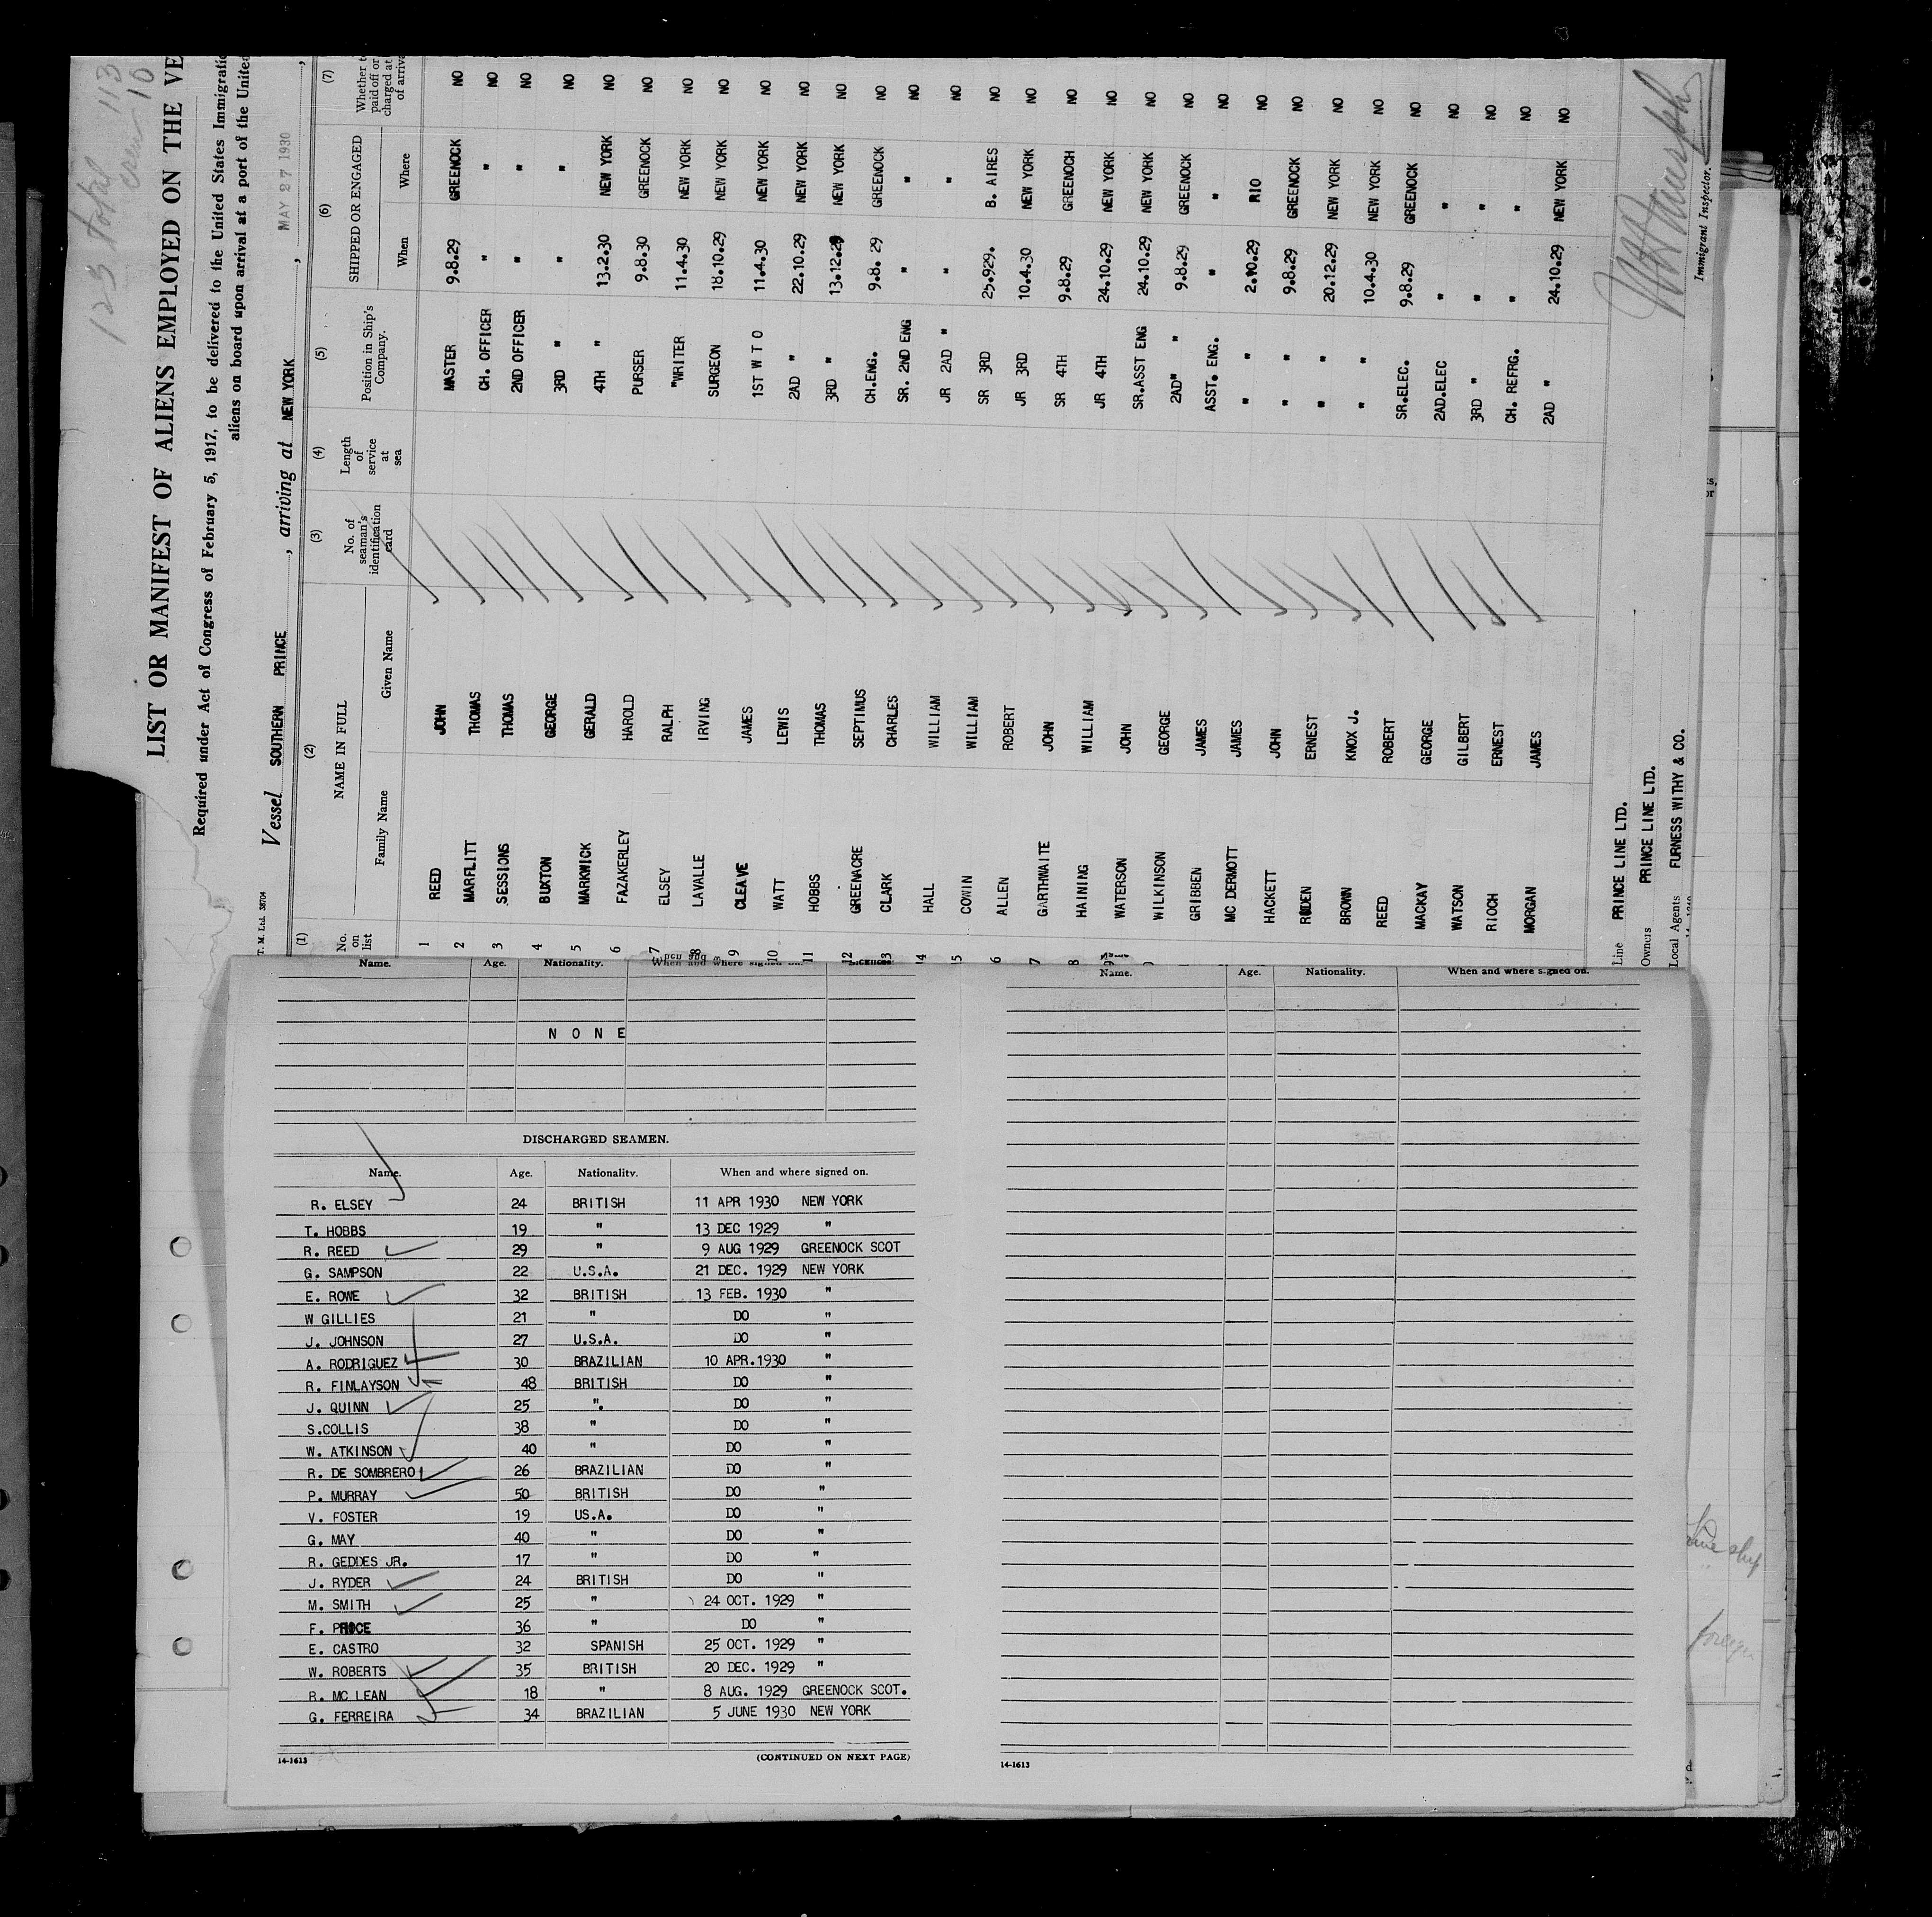 123 total 113
crew 10
LIST OR MANIFEST OF ALIENS EMPLOYED ON THE VE
Required under Act of Congress of February 5, 1917, to be delivered to the United States Immigratio
aliens on board upon arrival at a port of the United
T. M. Ltd. 38704
Vessel SOUTHERN PRINCE, arriving at NEW YORK, MAY 27 1930,
(1) (2) (3) (4) (5) (6) (7)
No. on list NAME IN FULL Family Name Given Name No. of seaman's identification card Length of service at sea Position in Ship's Company. SHIPPED OR ENGAGED When Where Whether t paid off or charged at of arriva
1 REED JOHN MASTER 9.8.29 GREENOCK NO
2 MARFLITT THOMAS CH. OFFICER " " NO
3 SESSIONS THOMAS 2ND OFFICER " " NO
4 BUXTON GEORGE 3RD " " " NO
5 MARKWICK GERALD 4TH " 13.2.30 NEW YORK NO
6 FAZAKERLEY HAROLD PURSER 9.8.30 GREENOCK NO
7 ELSEY RALPH "WRITER 11.4.30 NEW YORK NO
8 LAVALLE IRVING SURGEON 18.10.29 NEW YORK NO
9 CLEAVE JAMES 1ST W T O 11.4.30 NEW YORK NO
10 WATT LEWIS 2AD " 22.10.29 NEW YORK NO
11 HOBBS THOMAS 3RD " 13.12.29 NEW YORK NO
12 GREENACRE SEPTIMUS CH.ENG. 9.8.29 GREENOCK NO
13 CLARK CHARLES SR. 2ND ENG " " NO
14 HALL WILLIAM JR 2AD " " " NO
5 COWIN WILLIAM SR 3RD 25.929. B. AIRES NO
6 ALLEN ROBERT JR 3RD 10.4.30 NEW YORK NO
7 GARTHWAITE JOHN SR 4TH 9.8.29 GREENOCH NO
8 HAINING WILLIAM JR 4TH 24.10.29 NEW YORK NO
9 WATERSON JOHN SR.ASST ENG 24.10.29 NEW YORK NO
WILKINSON GEORGE 2AD" " 9.8.29 GREENOCK NO
GRIBBEN JAMES ASST. ENG. " " NO
MC DERMOTT JAMES " 2.10.29 RIO NO
HACKETT JOHN " 9.8.29 GREENOCK NO
RODEN ERNEST " 20.12.29 NEW YORK NO
BROWN KNOX J. " 10.4.30 NEW YORK NO
REED ROBERT SR.ELEC. 9.8.29 GREENOCK NO
MACKAY GEORGE 2AD.ELEC " " NO
WATSON GILBERT 3RD " " " NO
RIOCH ERNEST CH. REFRG. " " NO
MORGAN JAMES 2AD " 24.10.29 NEW YORK NO
Line PRINCE LINE LTD.
Owners PRINCE LINE LTD.
Local Agents FURNESS WITHY & CO.
Immigrant Inspector.
Name. Age. Nationality. When and where signed on.
NONE
DISCHARGED SEAMEN.
Name. Age. Nationality. When and where signed on.
R. ELSEY 24 BRITISH 11 APR 1930 NEW YORK
T. HOBBS 19 " 13 DEC 1929 "
R. REED 29 " 9 AUG 1929 GREENOCK SCOT
G. SAMPSON 22 U.S.A. 21 DEC. 1929 NEW YORK
E. ROWE 32 BRITISH 13 FEB. 1930 "
W GILLIES 21 " DO "
J. JOHNSON 27 U.S.A. DO "
A. RODRIGUEZ 30 BRAZILIAN 10 APR.1930 "
R. FINLAYSON 48 BRITISH DO "
J. QUINN 25 ". DO "
S.COLLIS 38 " DO "
W. ATKINSON 40 " DO "
R. DE SOMBRERO 26 BRAZILIAN DO "
P. MURRAY 50 BRITISH DO "
V. FOSTER 19 US.A. DO "
G. MAY 40 " DO "
R. GEDDES JR. 17 " DO "
J. RYDER 24 BRITISH DO "
M. SMITH 25 " 24 OCT. 1929 "
F. 36 " DO "
E. CASTRO 32 SPANISH 25 OCT. 1929 "
W. ROBERTS 35 BRITISH 20 DEC. 1929 "
R. MC LEAN 18 " 8 AUG. 1929 GREENOCK SCOT.
G. FERREIRA 34 BRAZILIAN 5 JUNE 1930 NEW YORK
14-1613 (CONTINUED ON NEXT PAGE)
Name. Age. Nationality. When and where signed on.
14-1613
ship
foreign